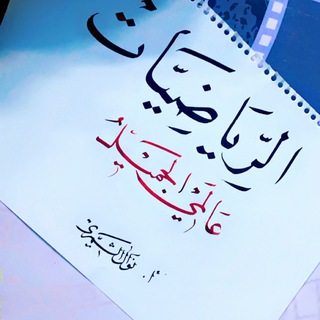 الرِّيَاضِيَّات
عَالَمِي الجَمِيلُ
أ. نوال الشمري